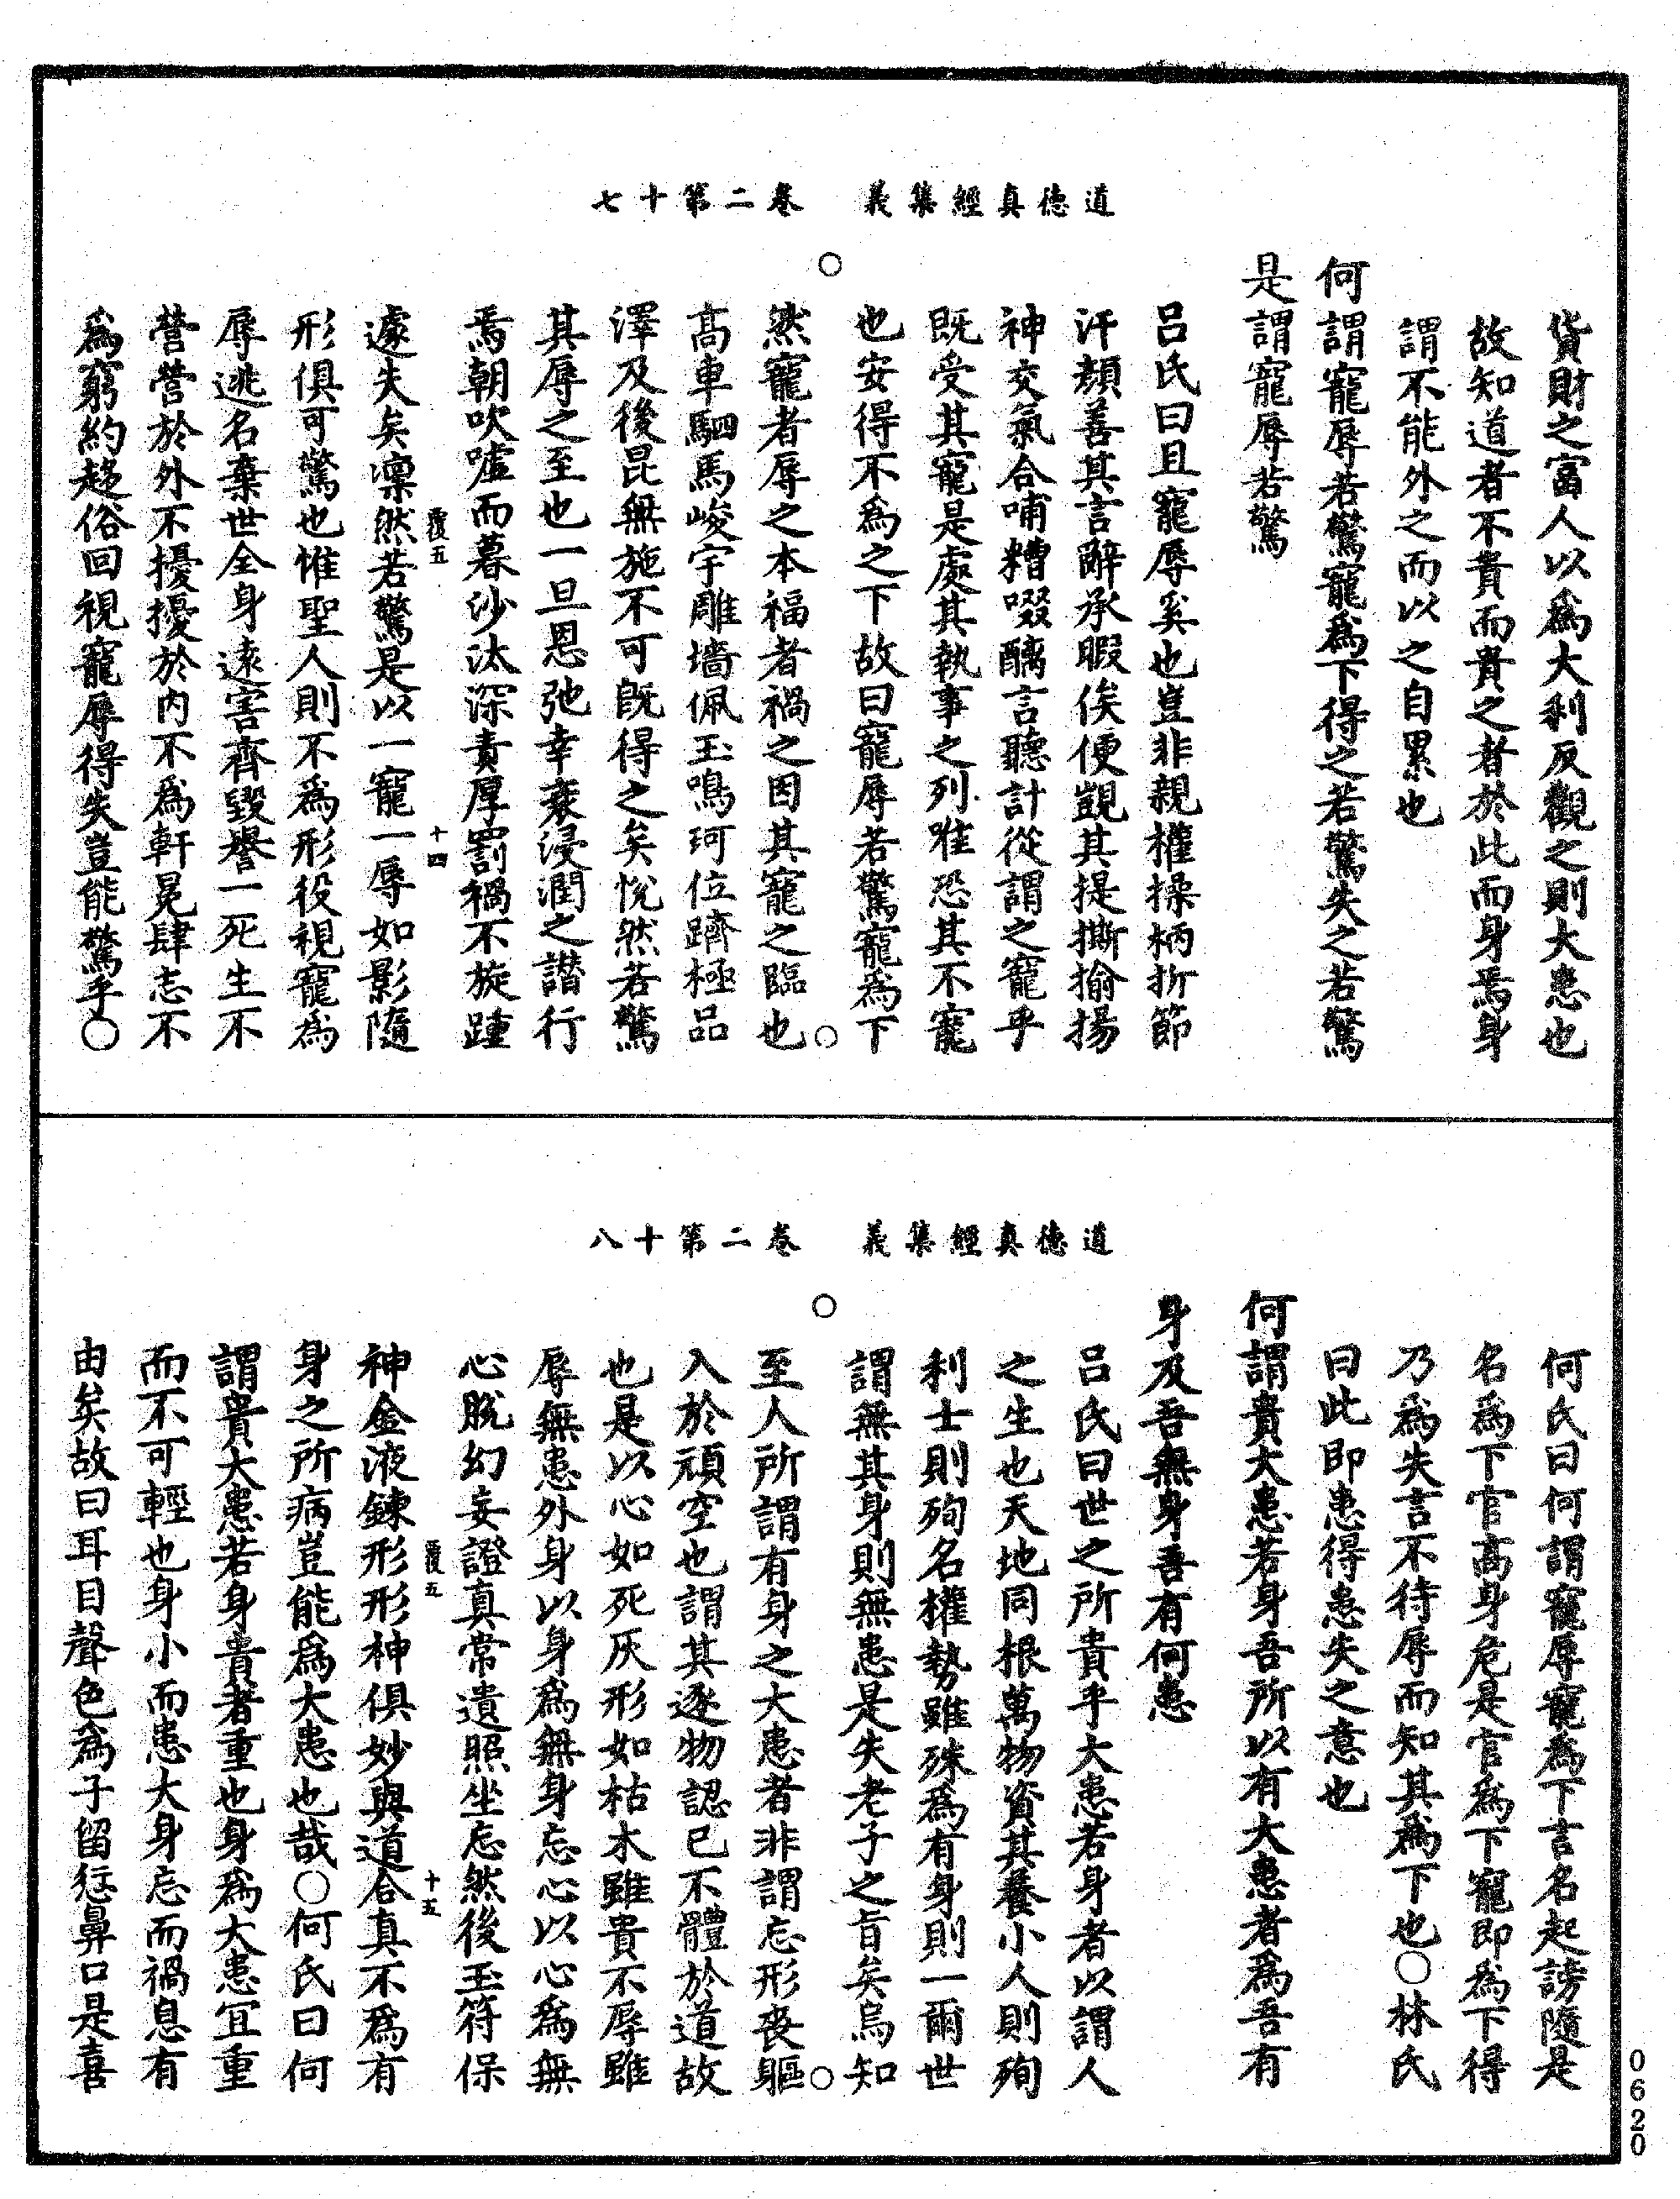 道德真經集義　卷二第十七
貨財之富人以爲大利反觀之則大患也
故知道者不貴而貴之者於此而身焉身
謂不能外之而以之自累也
何謂寵辱若驚寵爲下得之若驚失之若驚
是謂寵辱若驚
呂氏曰且寵辱奚也豈非親權操柄折節
汗顏善其言辭承暇俟便覬其提撕揄揚
神交氣合哺糟啜醨言聽計從謂之寵乎
既受其寵是處其執事之列唯恐其不寵
也安得不爲之下故曰寵辱若驚寵爲下
然寵者辱之本福者禍之因其寵之臨也
高車駟馬峻宇雕墻佩玉鳴珂位躋極品
澤及後昆無施不可旣得之矣恱然若驚
其辱之至也一旦恩弛幸衰浸潤之譖行
焉朝吹噓而暮沙汰深責厚罰禍不旋踵
遽失矣凜然若驚是以一寵一辱如影隨
覆五
十四
形俱可驚也惟聖人則不爲形役視寵爲
辱逃名棄世全身遠害齊毀譽一死生不
營營於外不擾擾於内不爲軒冕肆志不
爲窮約趍俗回視寵辱得失豈能驚乎○
道德真經集義　卷二第十八
何氏曰何謂寵辱寵爲下言名起謗隨是
名爲下官高身危是官爲下寵即爲下得
乃爲失言不待辱而知其爲下也○林氏
曰此即患得患失之意也
何謂貴大患若身吾所以有大患者爲吾有
身及吾無身吾有何患
呂氏曰世之所貴乎大患若身者以謂人
之生也天地同根萬物資其養小人則殉
利士則殉名權勢雖殊爲有身則一爾世
謂無其身則無患是失老子之旨矣烏知
至人所謂有身之大患者非謂忘形喪軀
入於頑空也謂其逐物認已不體於道故
也是以心如死灰形如枯木雖貴不辱雖
辱無患外身以身爲無身忘心以心爲無
心脫幻妄證真常遺照坐忘然後玉符保
神金液鍊形形神俱妙與道合真不爲有
覆五
十五
身之所病豈能爲大患也哉○何氏曰何
謂貴大患若身貴者重也身爲大患宜重
而不可輕也身小而患大身忘而禍息有
由矣故曰耳目聲色爲子留愆鼻口是喜
0620